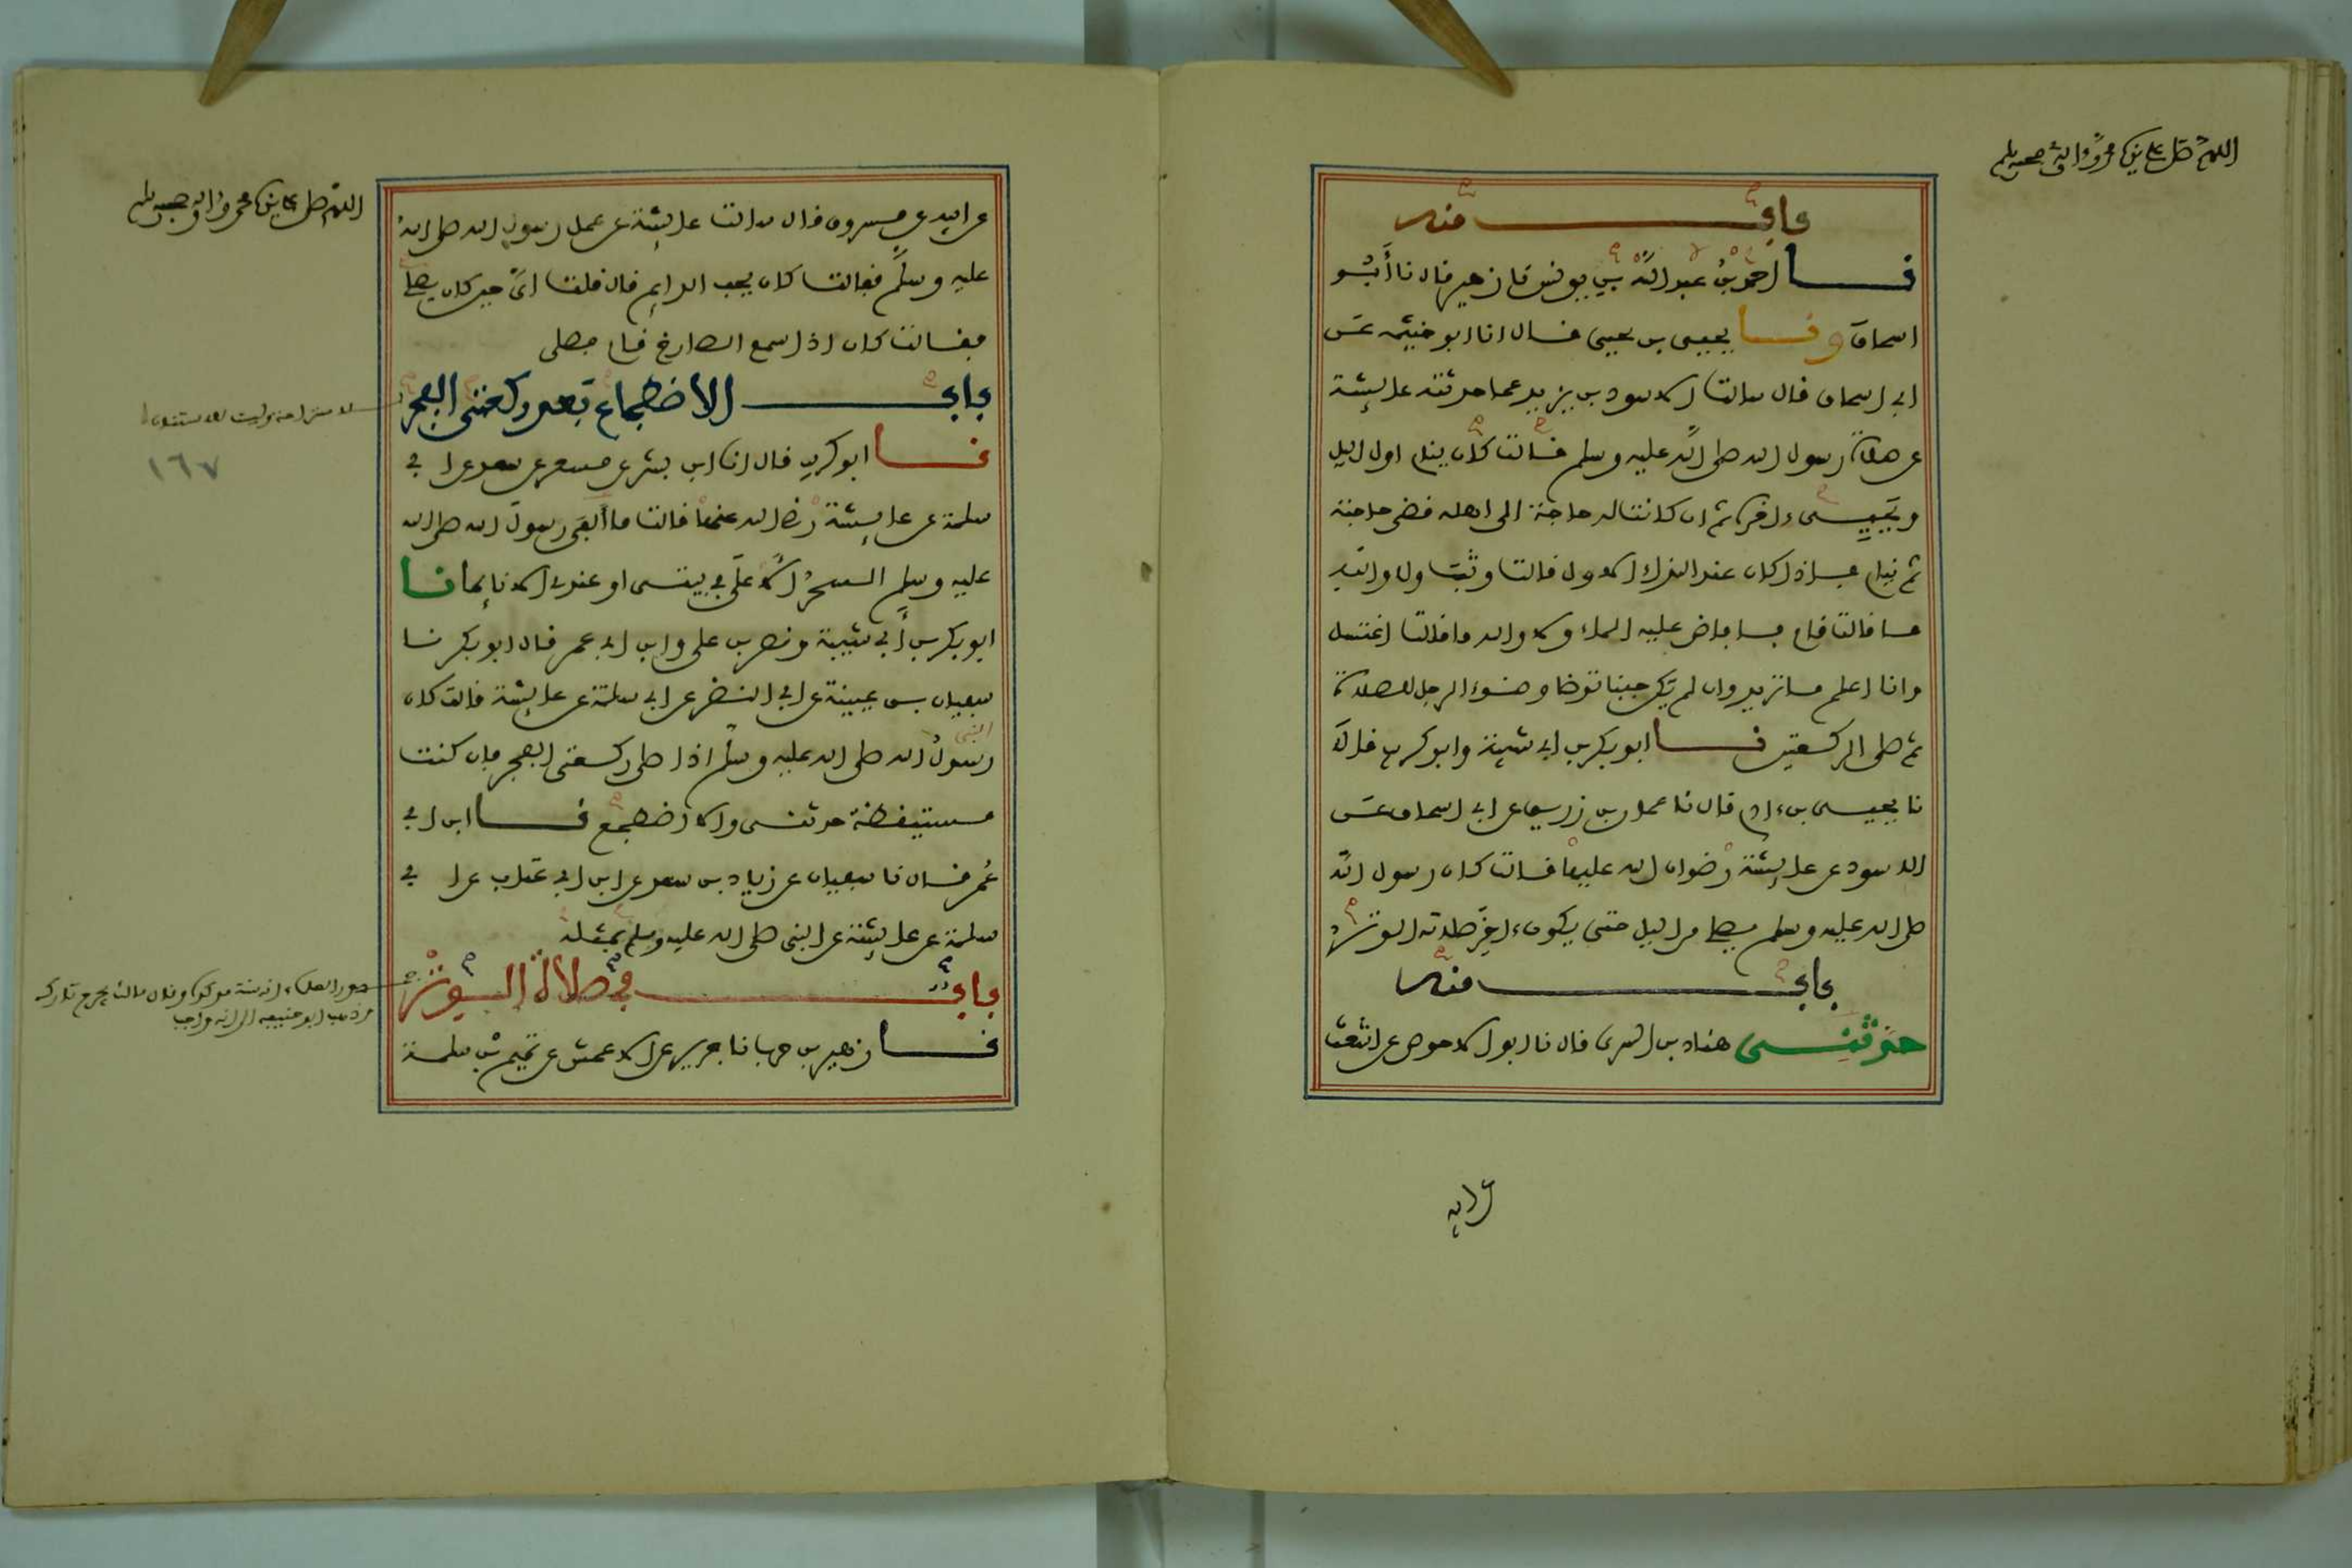 اللهم صل على سيدنا محمد واله وصحبه وسلم
باب منه
نا احمد بن عبد الله بن يونس قال نا زهير قال نا أبو
اسحاق ونا يحيى بن يحيى قال انا ابو خيثمه عن
ابي اسحاق قال سالت الاسود بن يزيد عما حدثته عايشة
عن صلاة رسول الله صلى الله عليه وسلم قالت كان ينام اول اليل
ويحيى ءاخره ثم ان كانت له حاجة الى اهله قضى حاجته
ثم ينام فاذا كان عند النداء الاول قالت وثب ولا والله
ما قالت قام فافاض عليه الماء ولا والله ما قالت اغتسل
وانا اعلم ما تريد وان لم يكن جنبا توضا وضوء الرجل للصلاة
ثم صلى الركعتين نا ابو بكر بن ابي شيبة وابو كريب قالا
نا يحيى بن ءادم قال نا عمار بن زريق عن ابي اسحاق عن
الاسود عن عايشة رضوان الله عليها قالت كان رسول الله
صلى الله عليه وسلم يصلي من اليل حتى يكون ءاخر صلاته الوتر
باب منه
حدثني هناد بن السري قال نا ابو الاحوص عن اشعث
عن ابيه
اللهم صل على سيدنا محمد واله وصحبه وسلم
عن ابيه عن مسروق قال سالت عايشة عن عمل رسول الله صلى الله
عليه وسلم فقالت كان يحب الدايم قال قلت اي حين كان يصلي
فقالت كان اذا سمع الصارخ قام فصلى
باب الاضطجاع بعد ركعتي الفجر
نا ابو كريب قال انا ابن بشر عن مسعر عن سعد عن ابي
سلمة عن عايشة رضي الله عنها قالت ما ألفى رسول الله صلى الله
عليه وسلم السحر الأعلى في بيتي او عندي الا نايما نا
ابو بكر بن أبي شيبة ونصر بن علي وابن ابي عمر قال ابو بكر نا
سفيان بن عيينة عن ابي النضر عن ابي سلمة عن عايشة قالت كان
النبي
رسول الله صلى الله عليه وسلم اذا صلى ركعتي الفجر فان كنت
مستيقظة حدثني والا اضطجع نا ابن ابي
عمر قال نا سفيان عن زياد بن سعد عن ابن ابي عتاب عن ابي
سلمة عن عايشة عن النبي صلى الله عليه وسلم بمثله
باب في صلاة الوتر
نا زهير بن حرب نا جرير عن الاعمش عن تميم بن سلمة
للاستراحة وليست للاستنان
١٦٧
جمهور العلماء انه سنة موكدة وقال مالك يجرح تاركه
وذهب ابو حنيفة الى انه واجب